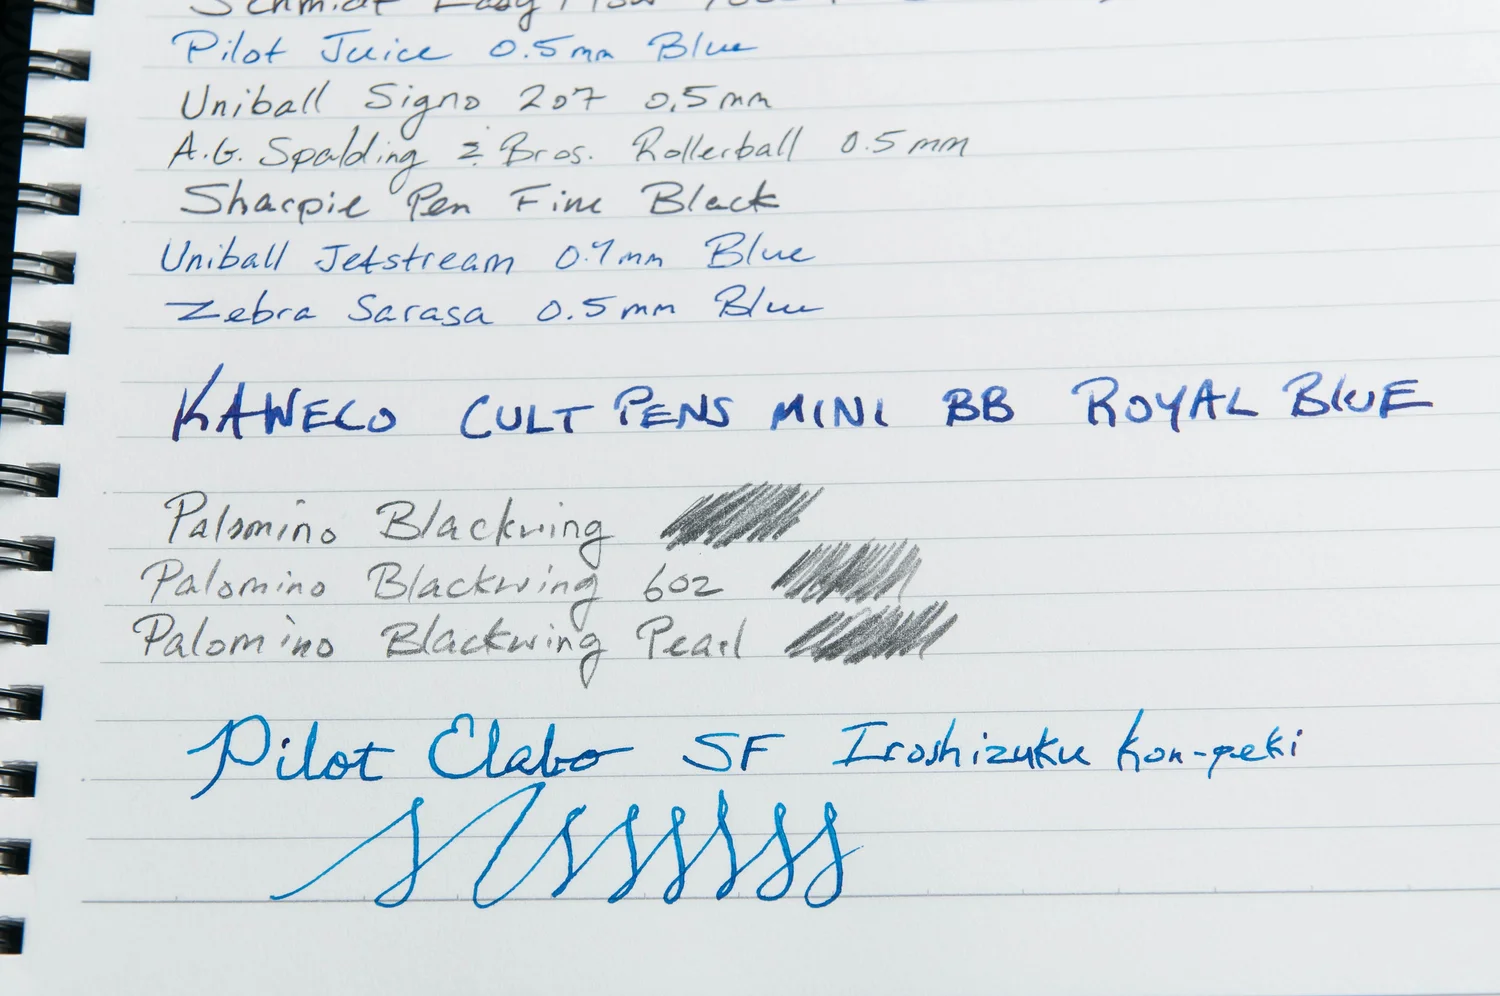 Schmidt Easy Flow
Pilot Juice 0.5mm Blue
Uniball Signo 207 0.5mm
A.G. Spalding & Bros. Rollerball 0.5mm
Sharpie Pen Fine Black
Uniball Jetstream 0.7mm Blue
Zebra Sarasa 0.5mm Blue
KAWECO CULT PENS MINI BB ROYAL BLUE
Palomino Blackwing
Palomino Blackwing 602
Palomino Blackwing Pearl
Pilot Elabo SF Iroshizuku Kon-peki